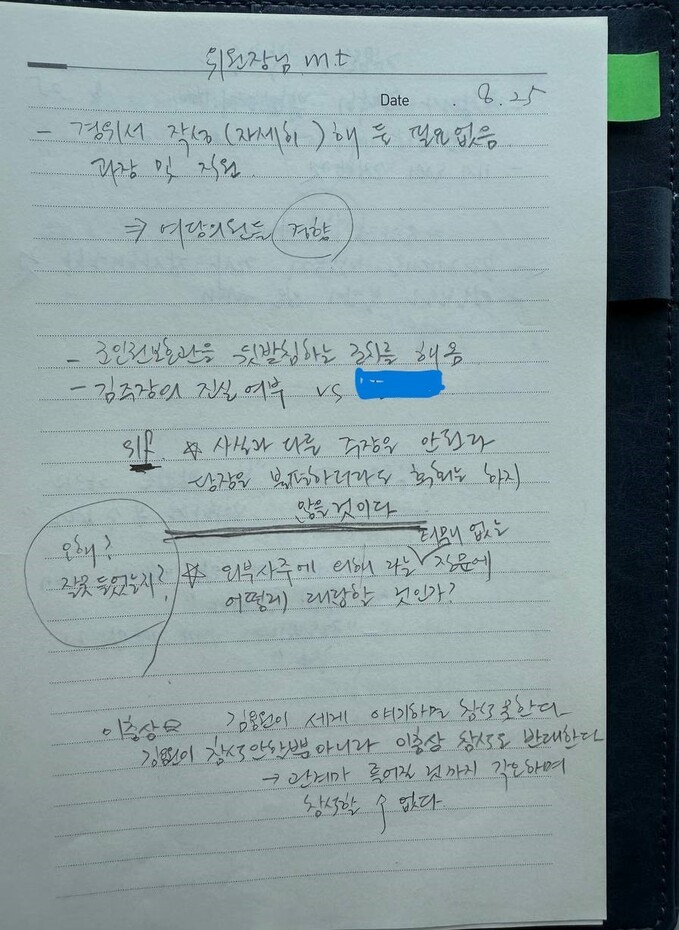 위원장님 m.t
Date . 8. 25
- 경위서 작성 (자세히) 해 둘 필요없음
과장 및 직원.
⇒ 여당의원들 경향
- 군인권보호관을 뒷받침하는 조치를 해옴
- 김국장의 진실 여부 vs
if. ☆ 사실과 다른 주장을 안한다
당장은 불편하더라도 후회는 하지
않을것이다
오해?
잘못 들었는지?
터무니 없는
☆ 외부사주에 의해 라는 질문에
어떻게 대답할 것인가?
이충상 김용원이 세게 얘기하면 참석못한다
김용원이 참석안할뿐아니라 이충상 참석도 반대한다
→ 관계가 틀어질 것까지 각오하며
참석할 수 없다.